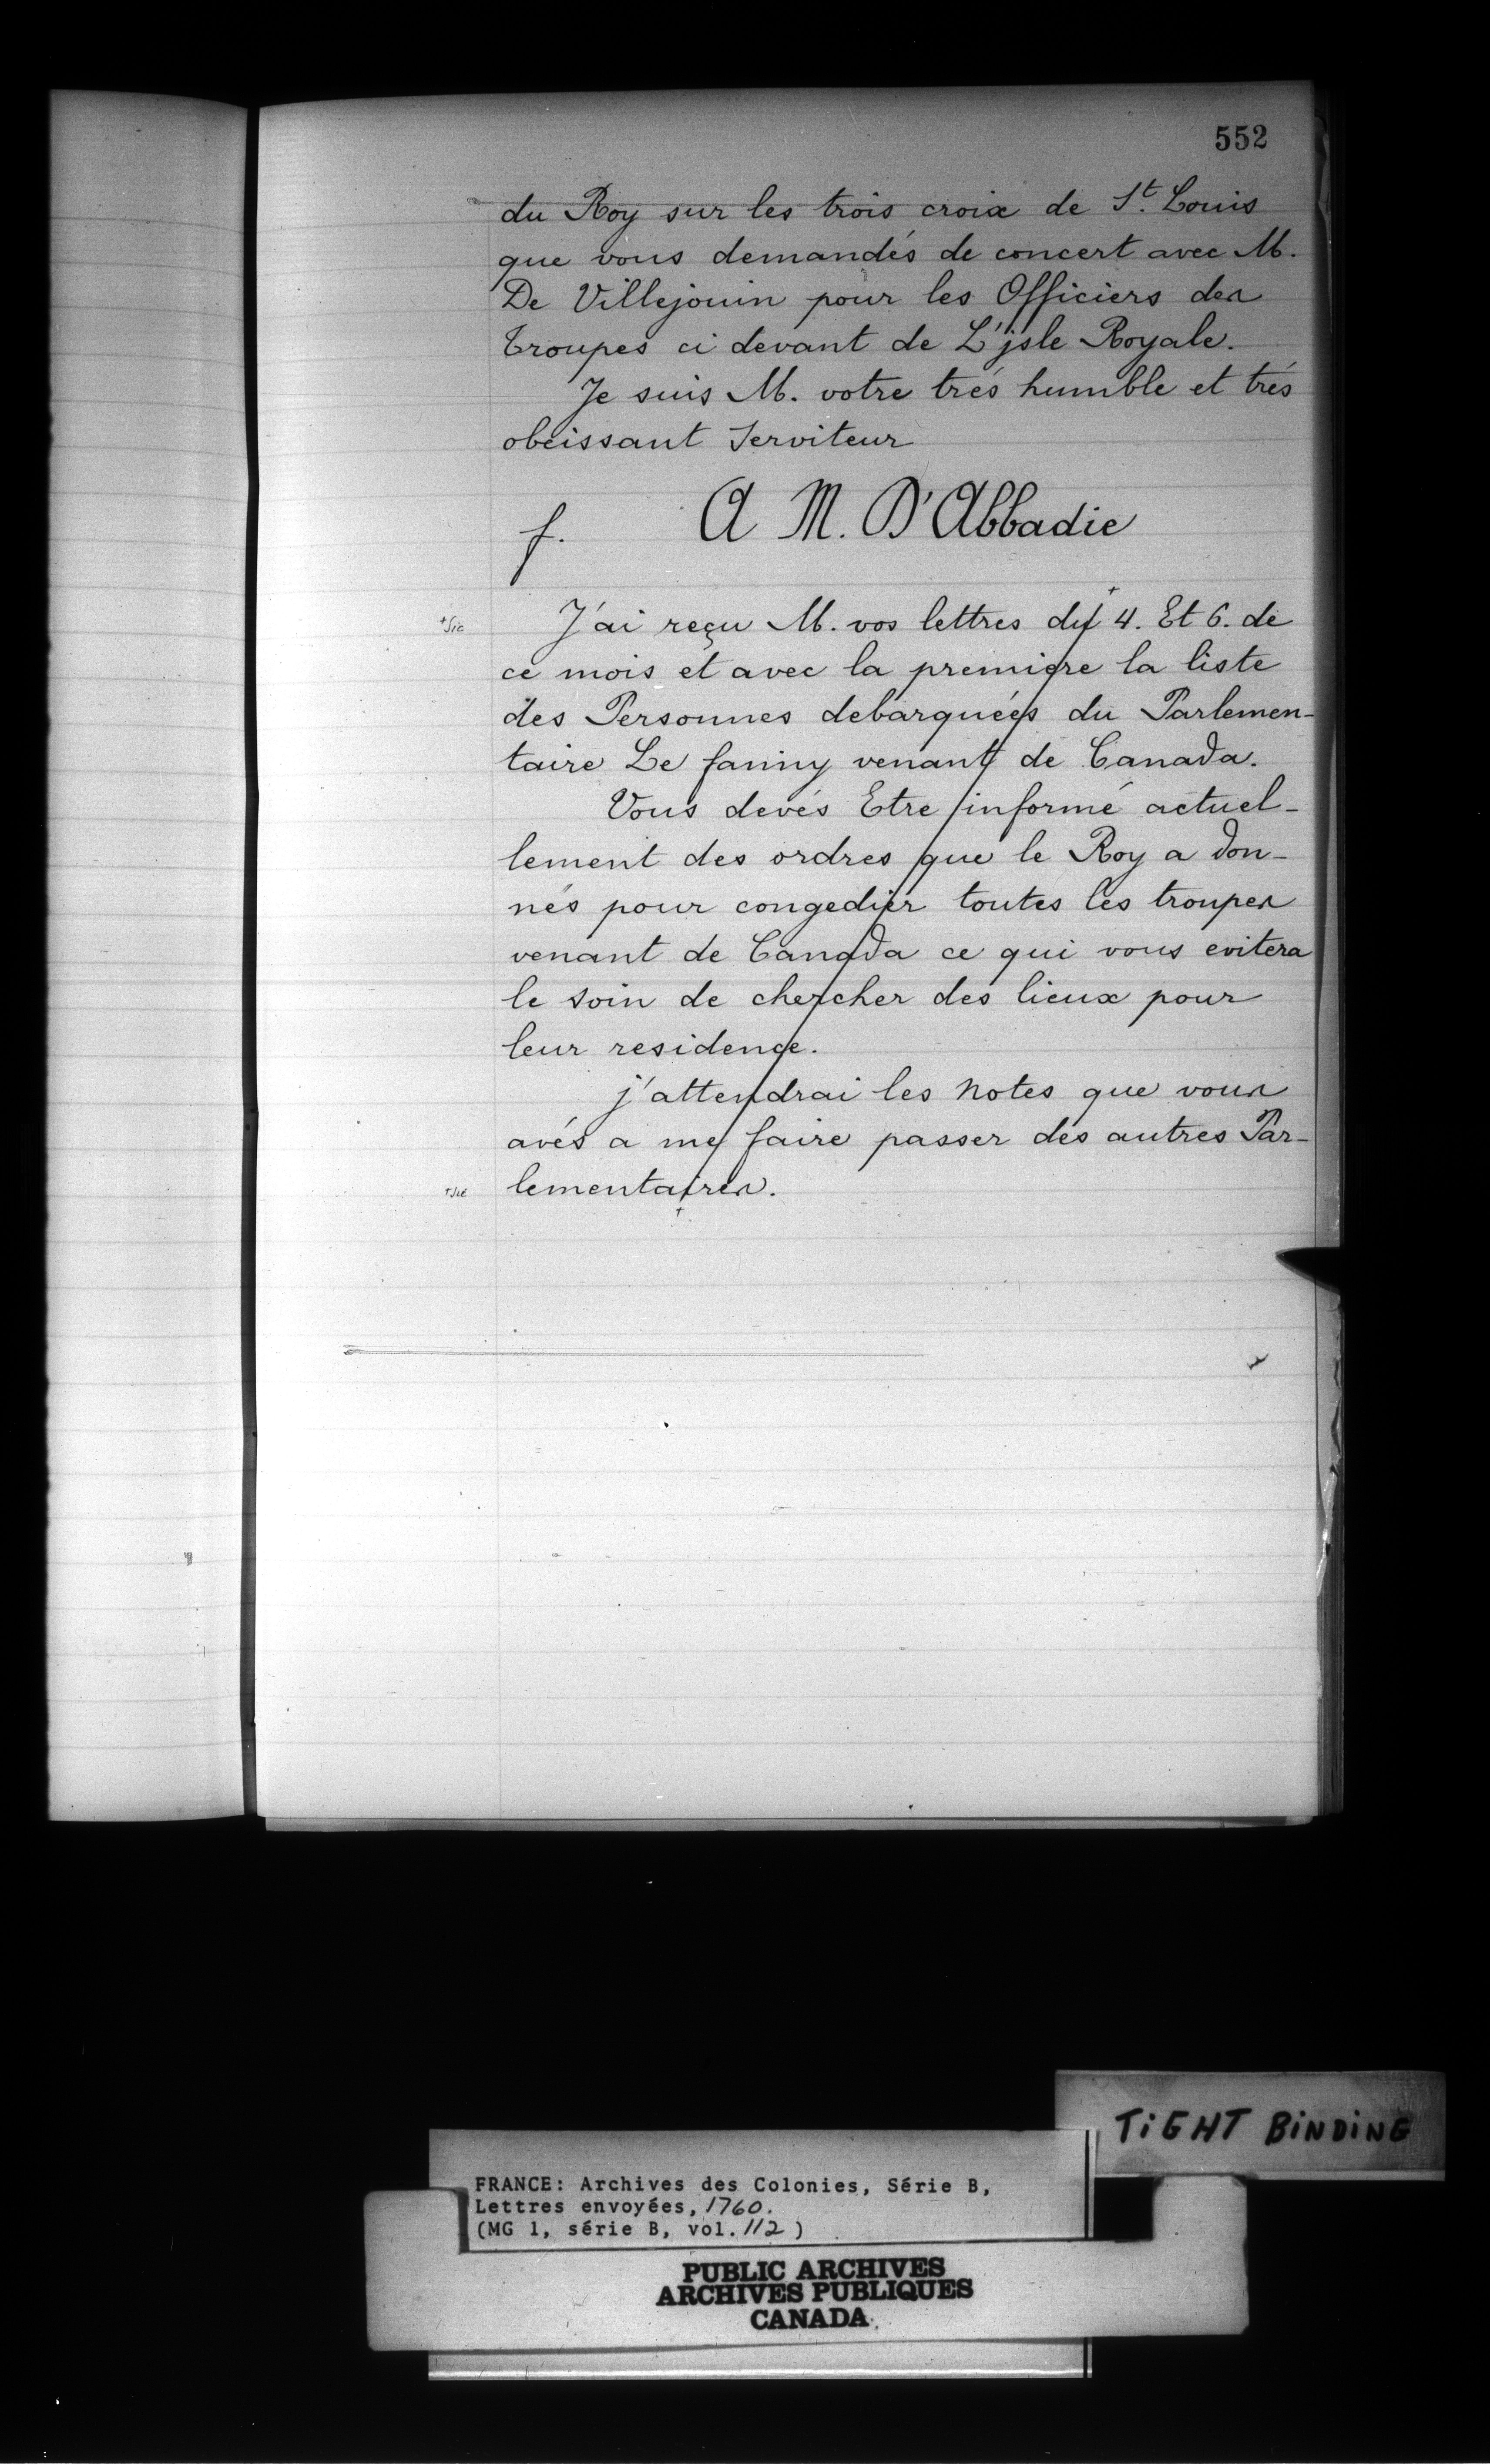 552
du Roy sur les trois croix de St. Louis
que vous demandés de concert avec M.
De Villejouin pour les Officiers des
troupes ci devant de L'jsle Royale.
Je suis M. votre trés humble et trés
obeissant Serviteur
f. A M. D'Abbadie
+sic J'ai reçu M. vos lettres du + 4. Et 6. de
ce mois et avec la premiere la liste
des Personnes debarquées du Parlemen-
taire Le fanny venant de Canada.
Vous devés Etre informé actuel-
lement des ordres que le Roy a don-
nés pour congedier toutes les troupes
venant de Canada ce qui vous evitera
le soin de chercher des lieux pour
leur residence.
j'attendrai les notes que vous
avés a me faire passer des autres Par-
+sic lementaires.
+
TiGHT BiNDiNG
FRANCE: Archives des Colonies, Série B,
Lettres envoyées, 1760.
(MG 1, série B, vol. 112)
PUBLIC ARCHIVES
ARCHIVES PUBLIQUES
CANADA